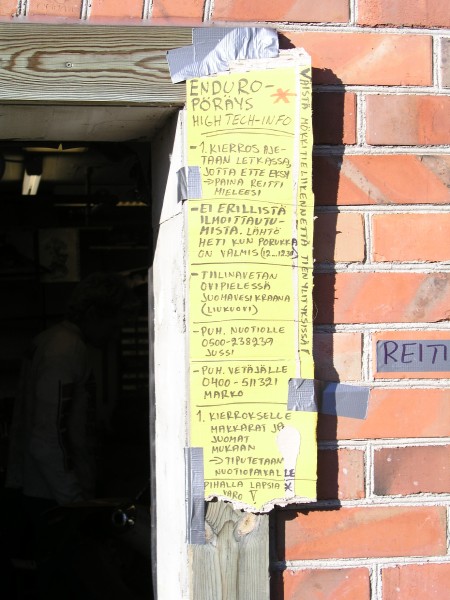 ENDURO-
PÖRÄYS
HIGH TECH-INFO
- 1. KIERROS AJE-
TAAN LETKASSA,
JOTTA ETTE EKSY
→ PAINA REITTI
MIELEESI
- EI ERILLISTÄ
ILMOITTAUTU-
MISTA. LÄHTÖ
HETI KUN PORUKKA
ON VALMIS (12...1230)
- TIILINAVETAN
OVIPIELESSÄ
JUOMAVESIKRAANA
(LIUKUOVI)
- PUH. NUOTIOLLE
0500-238239
JUSSI
- PUH. VETÄJÄLLE
0400-511321
MARKO
1. KIERROKSELLE
MAKKARAT JA
JUOMAT
MUKAAN
→ TIPUTETAAN
NUOTIOPAIKALLE
PIHALLA LAPSIA
VARO !
VÄISTÄ MÖKKITIELIIKENNETTÄ TIENYLITYKSISSÄ!
REITI